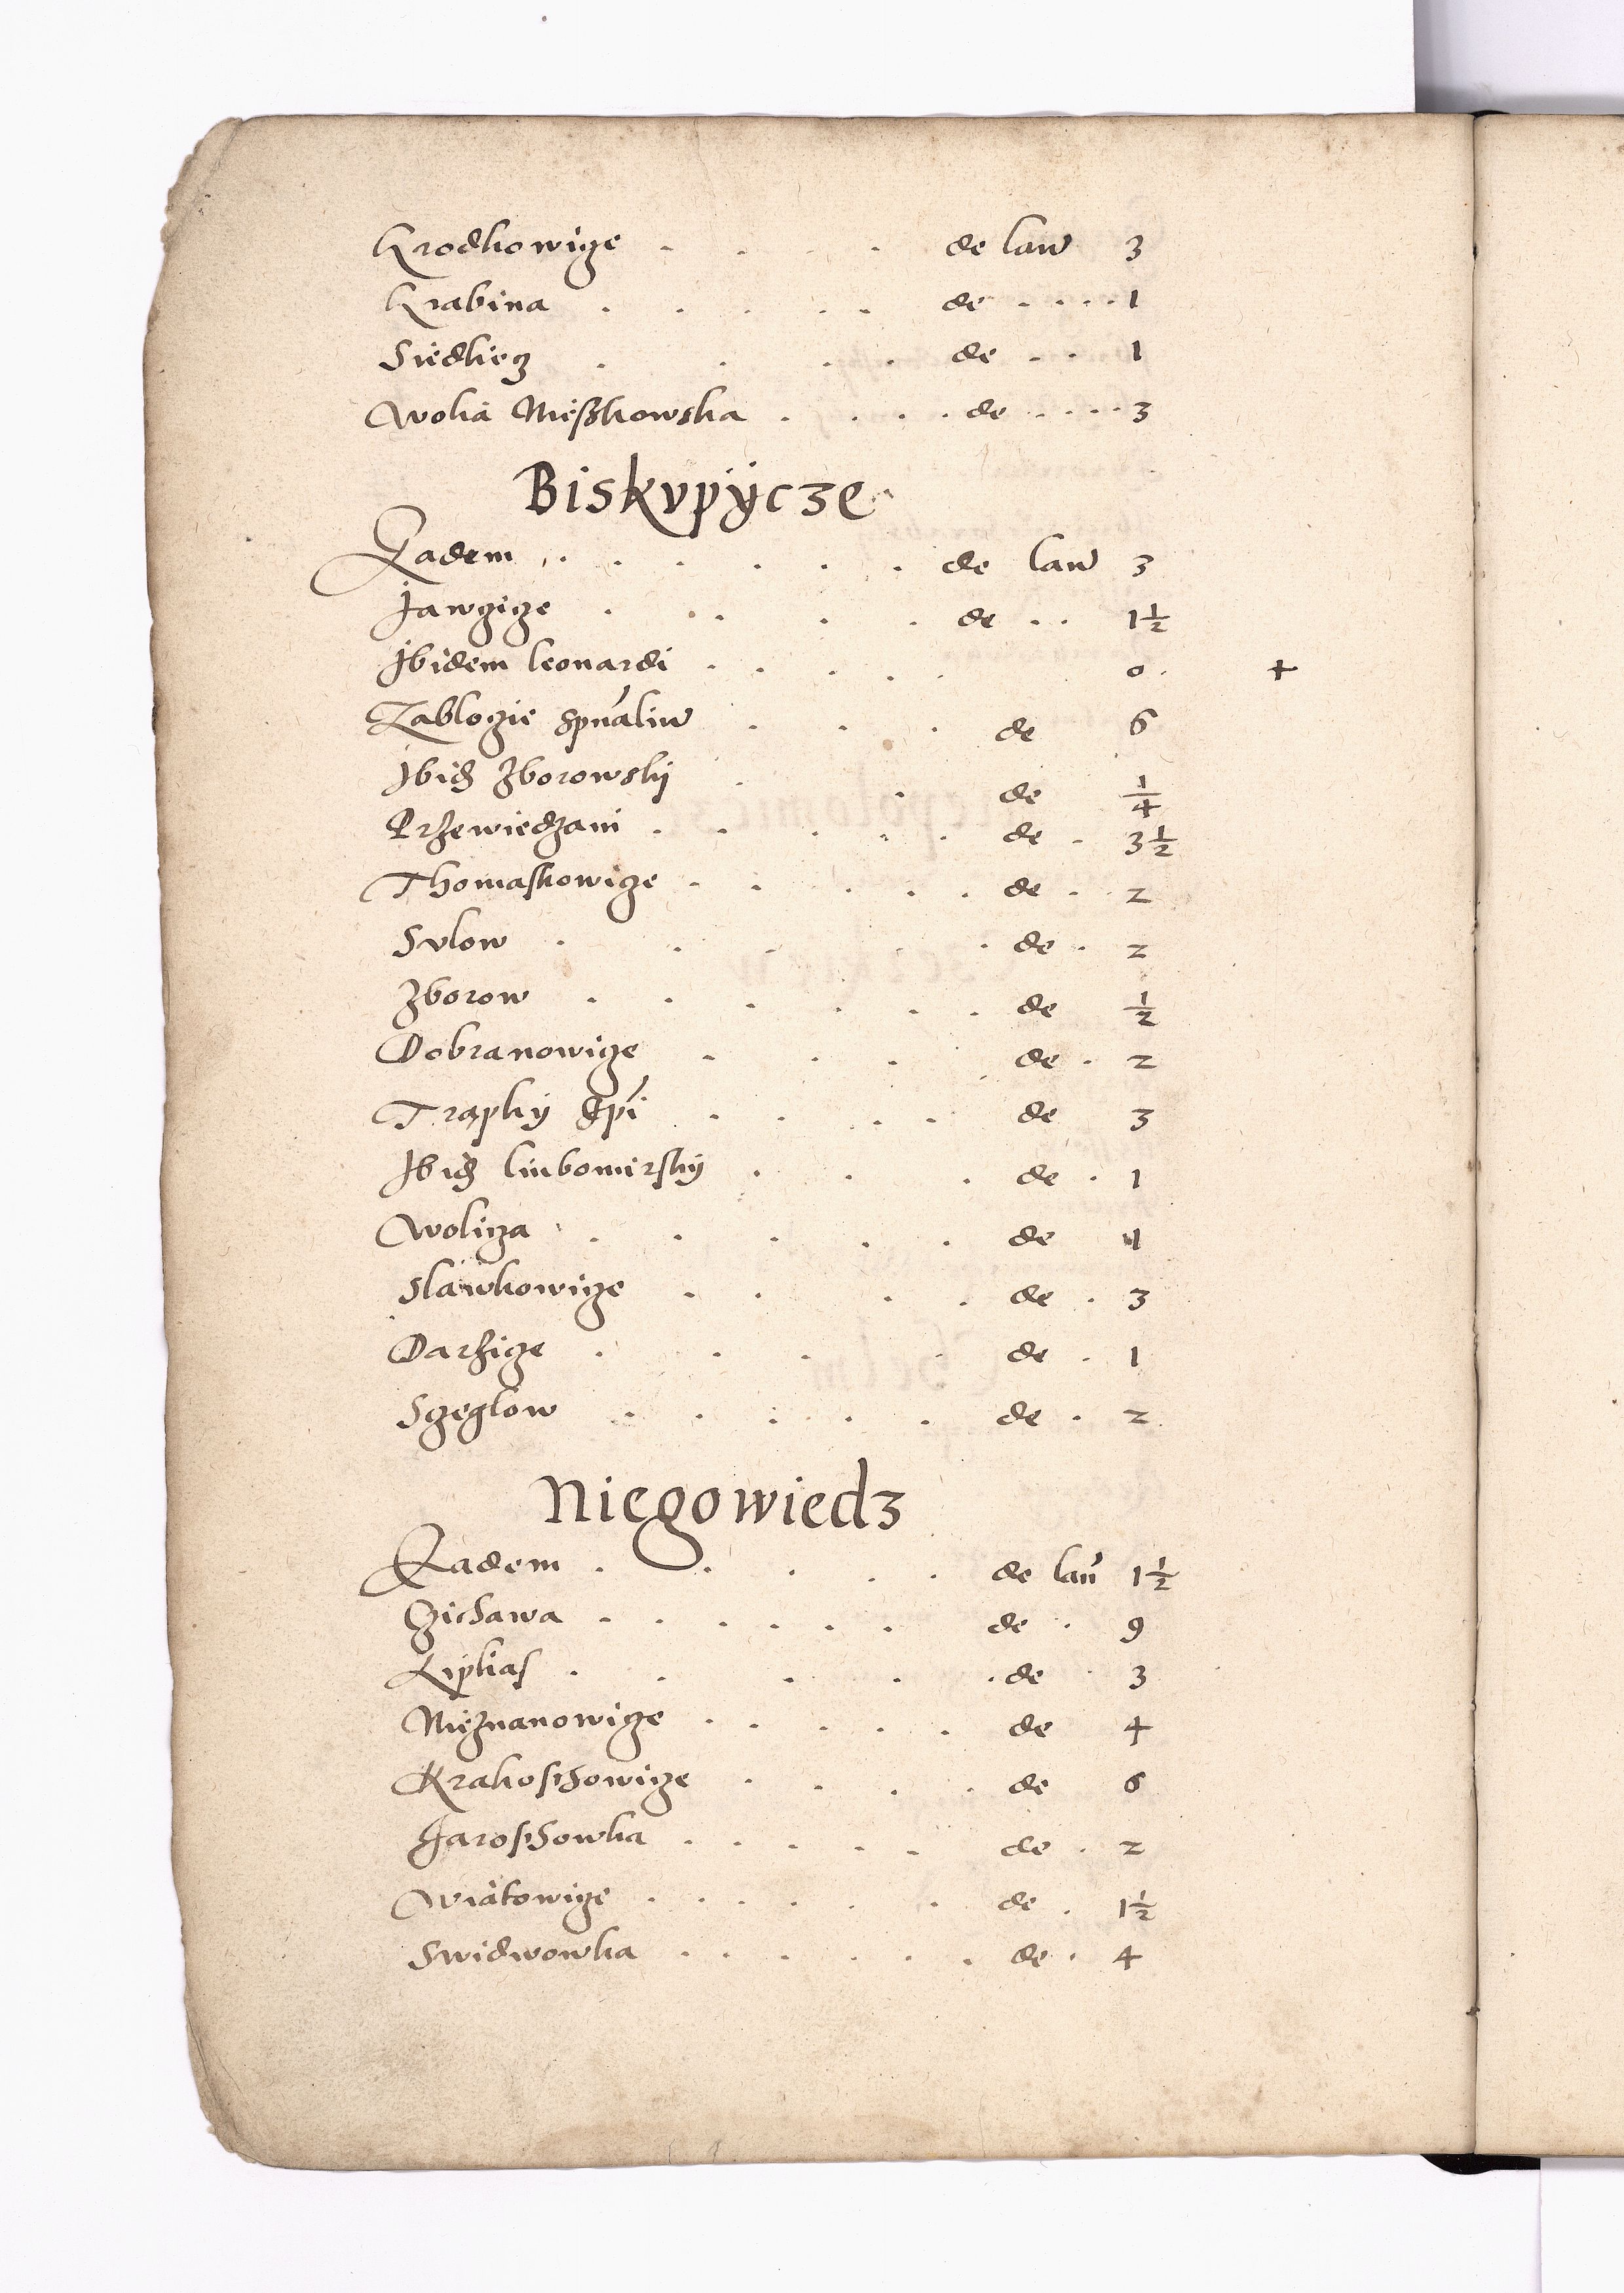 Krodkowicze . . . . de lan̄ 3
Krabina . . . . . de . . . . 1
Siedliecz . . . . de . . . 1
Wolia Mieszkowska . . . . de . . . . . 3
Biskvpÿcze
Eadem . . . . . . . de lan̄ 3
Jawczicze . . . . . de . . 1½
Ibidem leonardi . . . . . 0 . +
Zablozie spūaliū . . . de 6
Ibid Zborowskÿ . . de ¼
Przewiedzani . . . . . de . 3½
Thomaskowicze . . . . . de . 2
Svlow . . . . de . 2
Zborow . . . . . . de ½
Dobranowicze . . . de . 2
Trąpkÿ Epī . . . . de 3
Ibid liubomirskÿ . . . de . 1
Wolicza . . . . . de 1
Slawkowicze . . . . de . 3
Darzicze . . . . de . 1
Sczeglow . . . . . de . 2
Niegowiedz
Eadem . . . . . de lan̄ 1½
Czichawa . . . . . de . 9
Liplias . . . . . de 3
Nieznanowicze . . . . . de 4
Krakoschowicze . . . . de 6
Jaroschowka . . . . . de . 2
Wiatowicze . . . . . de . 1½
Swidwowka . . . . . . de . 4